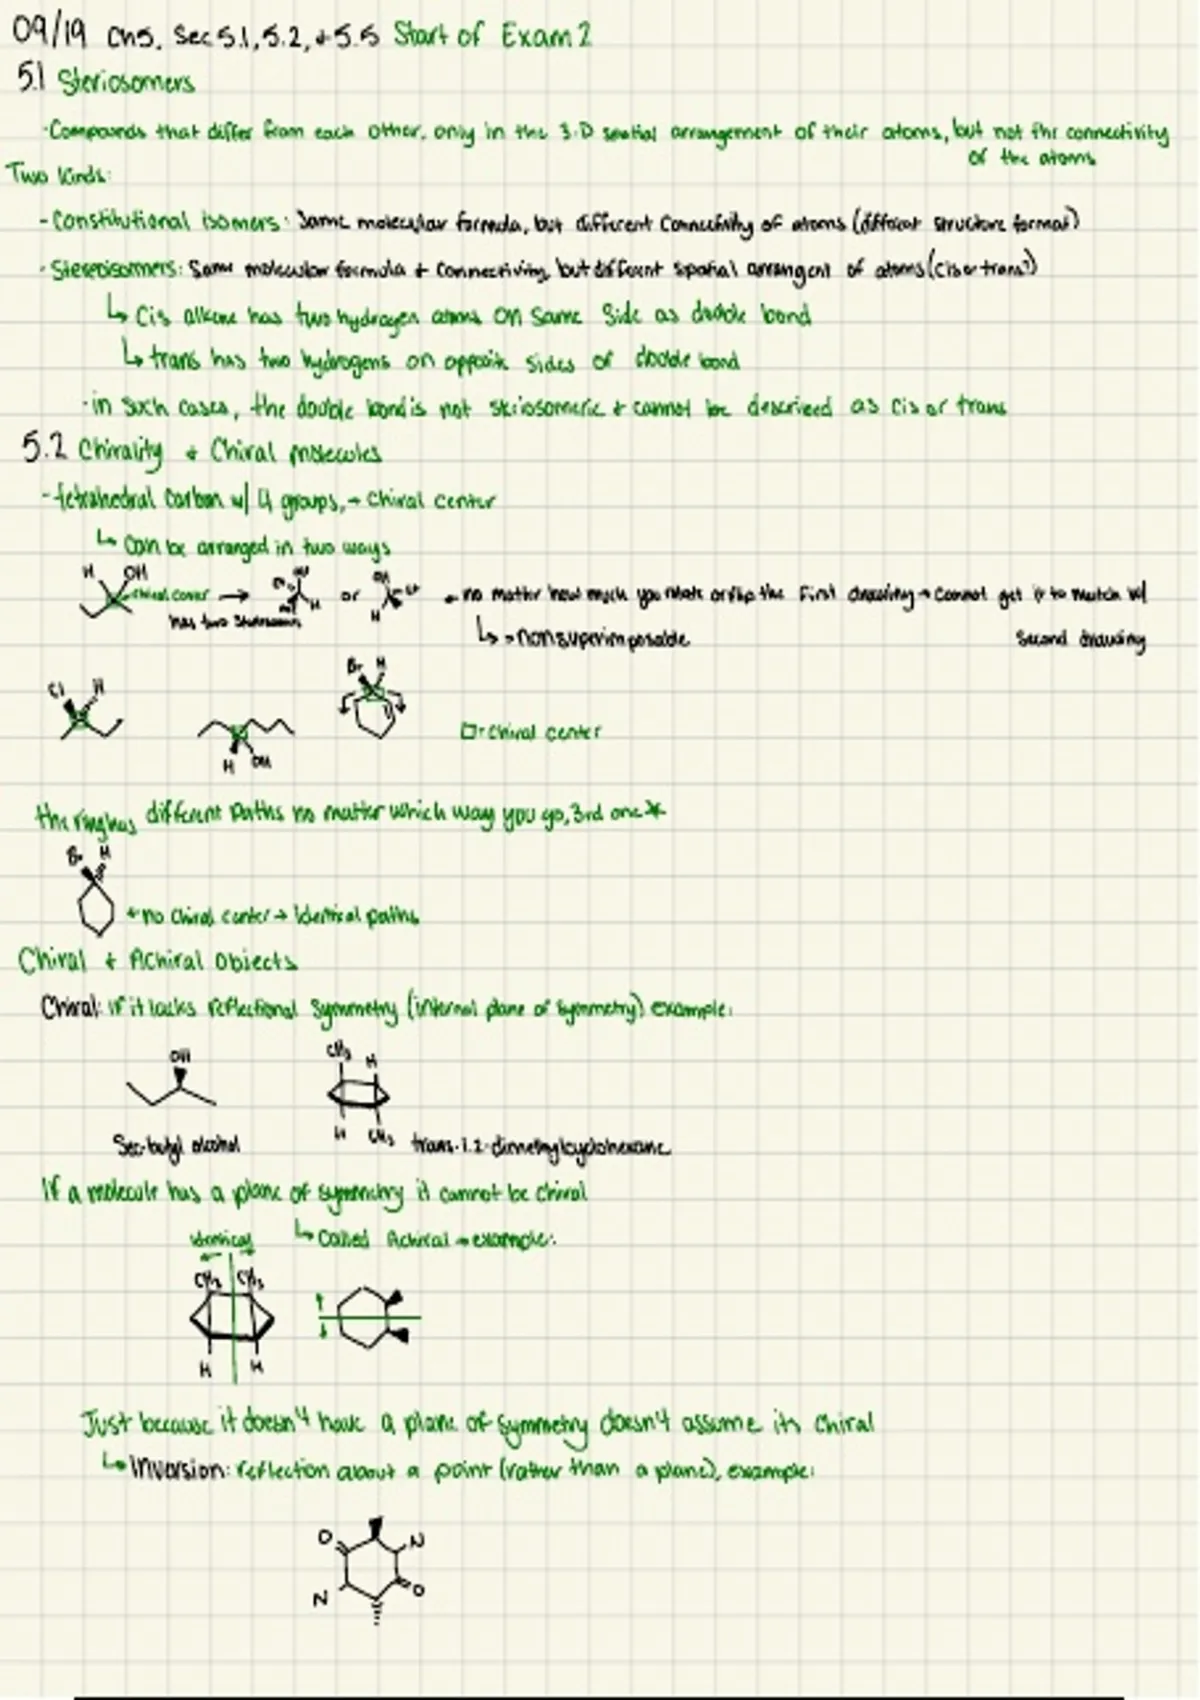 09/19 Ch5. Sec 5.1, 5.2, + 5.5 Start of Exam 2
5.1 Steriosomers
·Compounds that differ from each other, only in the 3-D spatial arrangement of their atoms, but not the connectivity
of the atoms
Two kinds:
-Constitutional isomers: Same molecular formula, but different Connectivity of atoms (different structure format)
·Stereoisomers: Same molecular formula + Connectivity, but different spatial arrangent of atoms (cis or trans?)
↳ Cis alkene has two hydrogen atoms on same side as double bond
↳ trans has two hydrogens on opposite sides of double bond
·in such cases, the double bond is not steriosomeric + cannot be described as cis or trans
5.2 Chirality + Chiral molecules
-tetrahedral Carbon w/ 4 groups, → Chiral center
↳ Can be arranged in two ways
H OH
chiral center → OH H or OH H
no matter how much you rotate or flip the first drawing → Cannot get it to match w/
second drawing
↳ = nonsuperimposable
has two
Br H
Cl H
□ = chiral center
H OH
the ring has different paths no matter which way you go, 3rd one*
Br H
no chiral center → Identical paths
Chiral + Achiral Objects
Chiral: if it lacks reflectional symmetry (internal plane of symmetry) example:
OH CH3 H
H CH3
Sec-butyl alcohol trans-1.2-dimethylcyclohexane
If a molecule has a plane of symmetry it cannot be chiral
identical ↳ Called Achiral → example:
CH3 CH3
H H
Just because it doesn't have a plane of symmetry doesn't assume its Chiral
↳ Inversion: reflection about a point (rather than a plane), example:
O N
N O